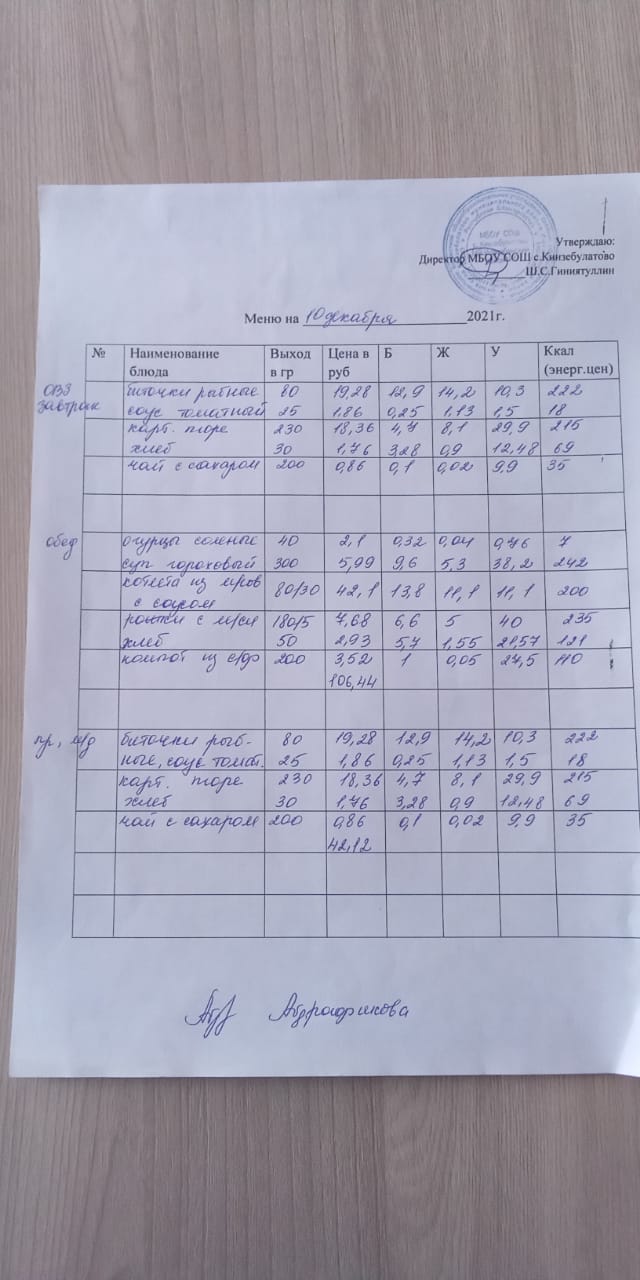 МБОУ СОШ
Утверждаю:
Директор МБОУ СОШ с.Кинзебулатово
Ш.С.Гиниятуллин
Меню на 10 декабря 2021г.
№ Наименование блюда Выход в гр Цена в руб Б Ж У Ккал (энерг.цен)
ОВЗ завтрак
биточки рыбные 80 19,28 12,9 14,2 10,3 222
соус томатный 25 1,86 0,25 1,13 1,5 18
карт. пюре 230 18,36 4,7 8,1 29,9 215
хлеб 30 1,76 3,28 0,9 12,48 69
чай с сахаром 200 0,86 0,1 0,02 9,9 35
обед огурцы соленые 40 2,1 0,32 0,04 0,76 7
суп гороховый 300 5,99 9,6 5,3 38,2 242
котлета из м/ров с соусом 80/30 42,1 13,8 11,1 11,1 200
рожки с м/сл 180/5 7,68 6,6 5 40 235
хлеб 50 2,93 5,7 1,55 21,57 121
компот из с/ф 200 3,52 1 0,05 27,5 110
106,44
пр, м/д биточки рыб- 80 19,28 12,9 14,2 10,3 222
ные, соус томат. 25 1,86 0,25 1,13 1,5 18
карт. пюре 230 18,36 4,7 8,1 29,9 215
хлеб 30 1,76 3,28 0,9 12,48 69
чай с сахаром 200 0,86 0,1 0,02 9,9 35
42,12